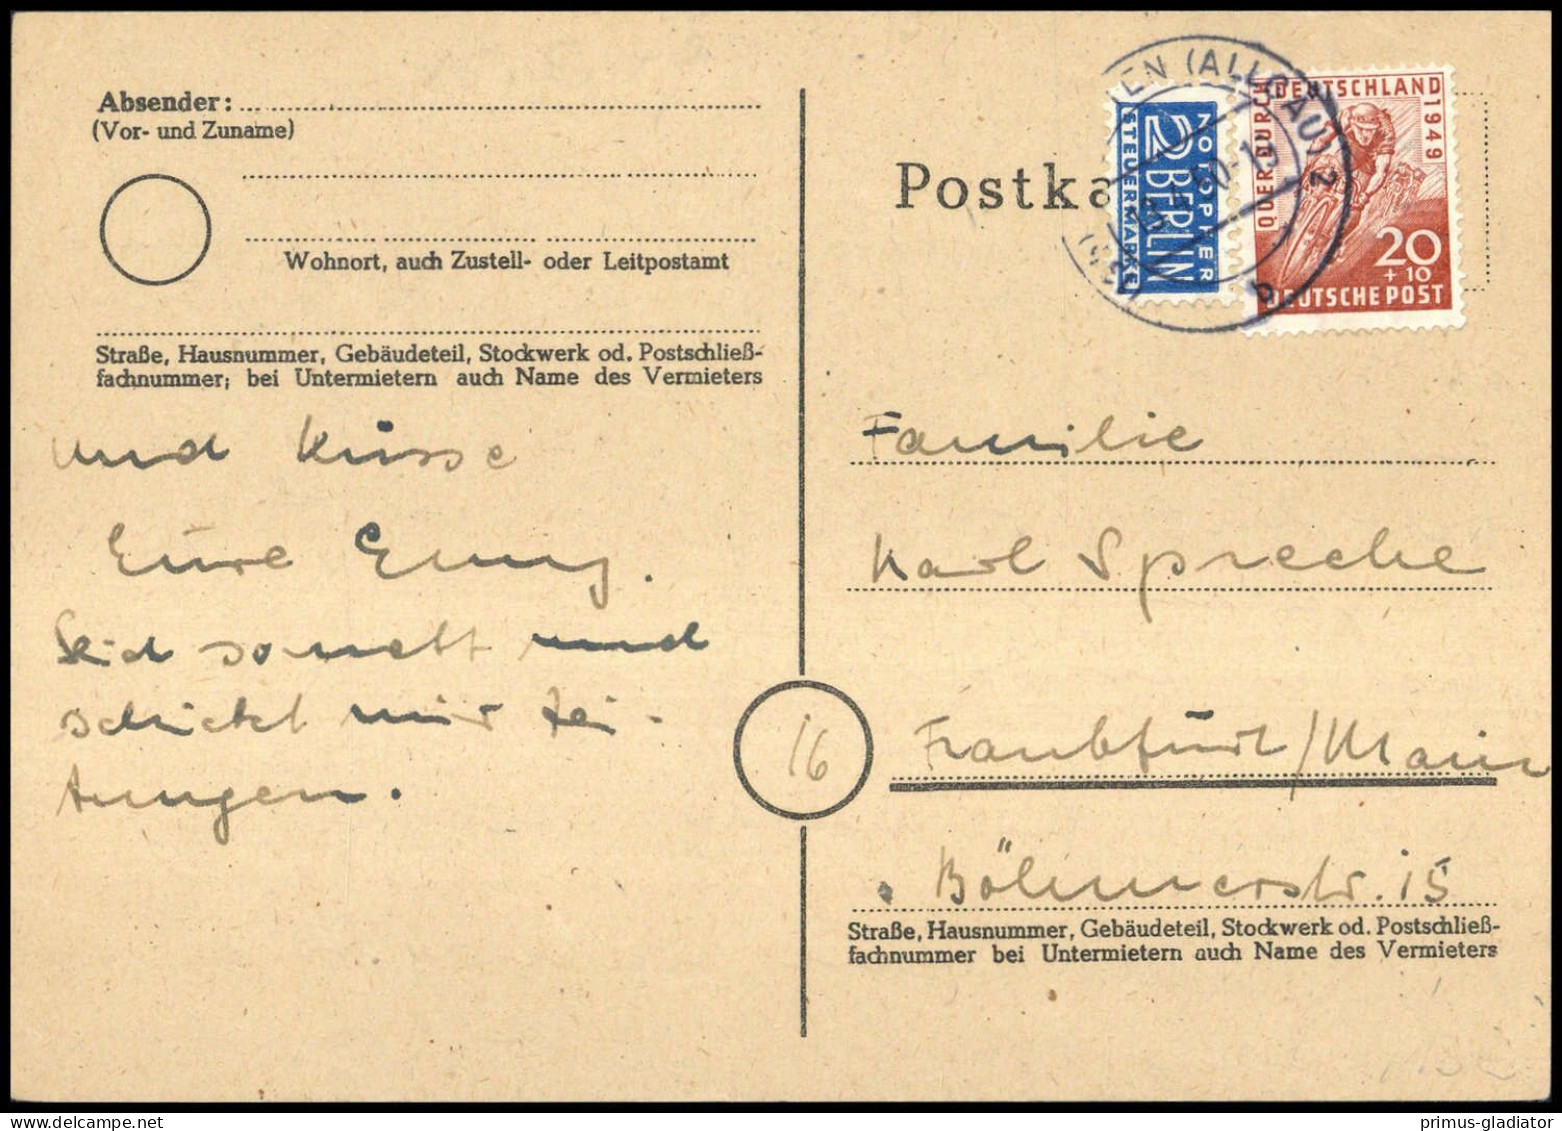 Absender:
(Vor- und Zuname)
Wohnort, auch Zustell- oder Leitpostamt
Straße, Hausnummer, Gebäudeteil, Stockwerk od. Postschließ-
fachnummer; bei Untermietern auch Name des Vermieters
und Küsse
Eure Emmy.
Seid so nett und
schickt mir Zei-
tungen.
Postka
NOTOPFER
2 BERLIN
STEUERMARKE
EN (ALLGÄU) 2
50-13
b
QUER DURCH
DEUTSCHLAND
1949
20
+ 10
DEUTSCHE POST
Familie
Karl Spreche
16
Frankfurt/Main
Böhmerstr. 15
Straße, Hausnummer, Gebäudeteil, Stockwerk od. Postschließ-
fachnummer bei Untermietern auch Name des Vermieters
primus-gladiator